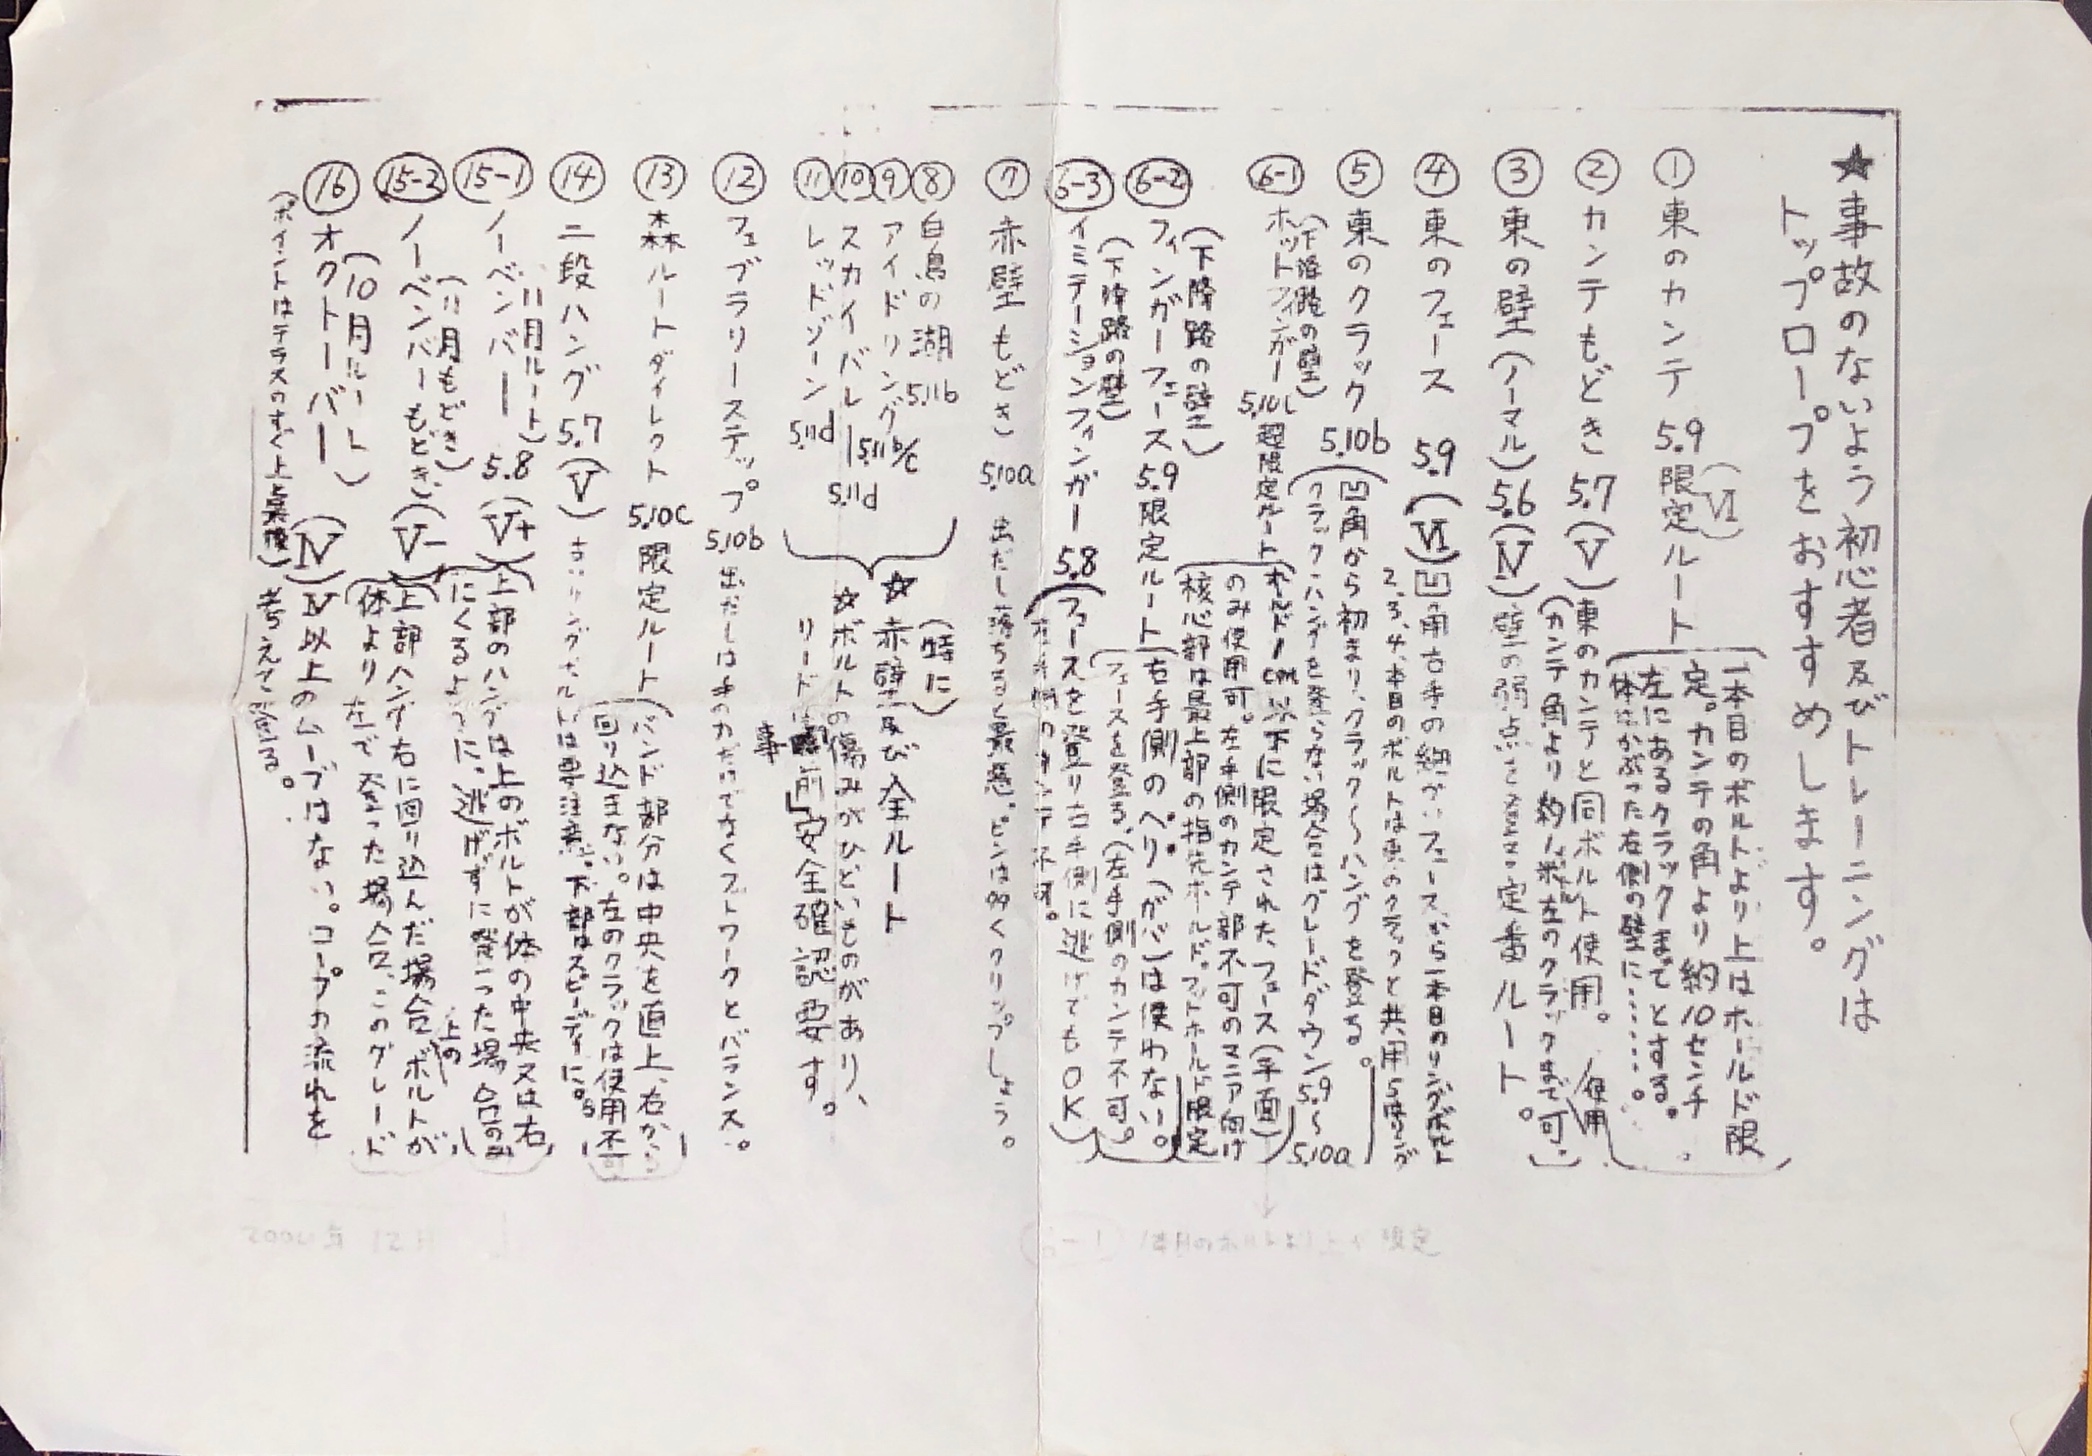 ★事故のないよう初心者及びトレーニングは
トップロープをおすすめします。
① 東のカンテ 5.9 (Ⅵ) 限定ルート
(一本目のボルトより上はホールド限
定。カンテの角より約10センチ
左にあるクラックまでとする。
体はかぶった右側の壁に……。)
② カンテもどき 5.7 (Ⅴ) 東のカンテと同ボルト使用。
(カンテ角より約1米左のクラックまで使用可.)
③ 東の壁(ノーマル) 5.6 (Ⅳ) 壁の弱点を登る定番ルート。
④ 東のフェース 5.9 (Ⅵ) 凹角右手の細かいフェースから一本目のリングボルト
2.3.4.本目のボルトは東のクラックと共用
⑤ 東のクラック 5.10b (凹角から初まり、クラック〜ハングを登る。
クラックハングを登らない場合はグレードダウン 5.9〜5.10a)
6-1 (下降路の壁)
ホットフィンガー 超限定ルート ホールド1cm以下に限定されたフェース(平面)
のみ使用可。左手側のカンテ部不可のマニア向け
(核心部は最上部の指先ホールド。フットホールド限定
6-2 (下降路の壁)
フィンガーフェース 5.9 限定ルート (右手側のへり(ガバ)は使わない。
フェースを登る、(左手側のカンテ不可。)
6-3 (下降路の壁)
イミテーションフィンガー 5.8 (フェースを登り右手側に逃げてもOK)
左手側のカンテ不可。
⑦ 赤壁もどき 5.10a 出だし落ちると最悪。ピンは多くクリップしょう。
⑧ 白鳥の湖 5.11b
⑨ アイドリング 5.11b/c
⑩ スカイバレー 5.11d
⑪ レッドゾーン 5.11d
(特に)
☆赤壁及び全ルート
☆ボルトの傷みがひどいものがあり、
リード 事前安全確認要す。
⑫ フェブラリーステップ 5.10b 出だしは手の力だけでなくフットワークとバランス。
⑬ 森ルートダイレクト 5.10c 限定ルート (バンド部分は中央を直上、右から
回り込まない。左のクラックは使用不可)
⑭ 二段ハング 5.7 (Ⅴ) 古いリングボルトは要注意。下部はスピーディーに。
15-1 (11月ルート)
ノーベンバー 5.8 (Ⅴ+) (上部のハングは上のボルトが体の中央又は右
にくるように、逃げずに登った場合のみ)
15-2 (11月もどき)
ノーベンバーもどき. (Ⅴ-) (上部ハング右に回り込んだ場合、上のボルトが
体より左で登った場合、このグレード
16 (10月ルート)
オクトーバー (Ⅳ) Ⅳ以上のムーブはない。ロープの流れを
考えて登る。
(ポイントはテラスのすぐ上)